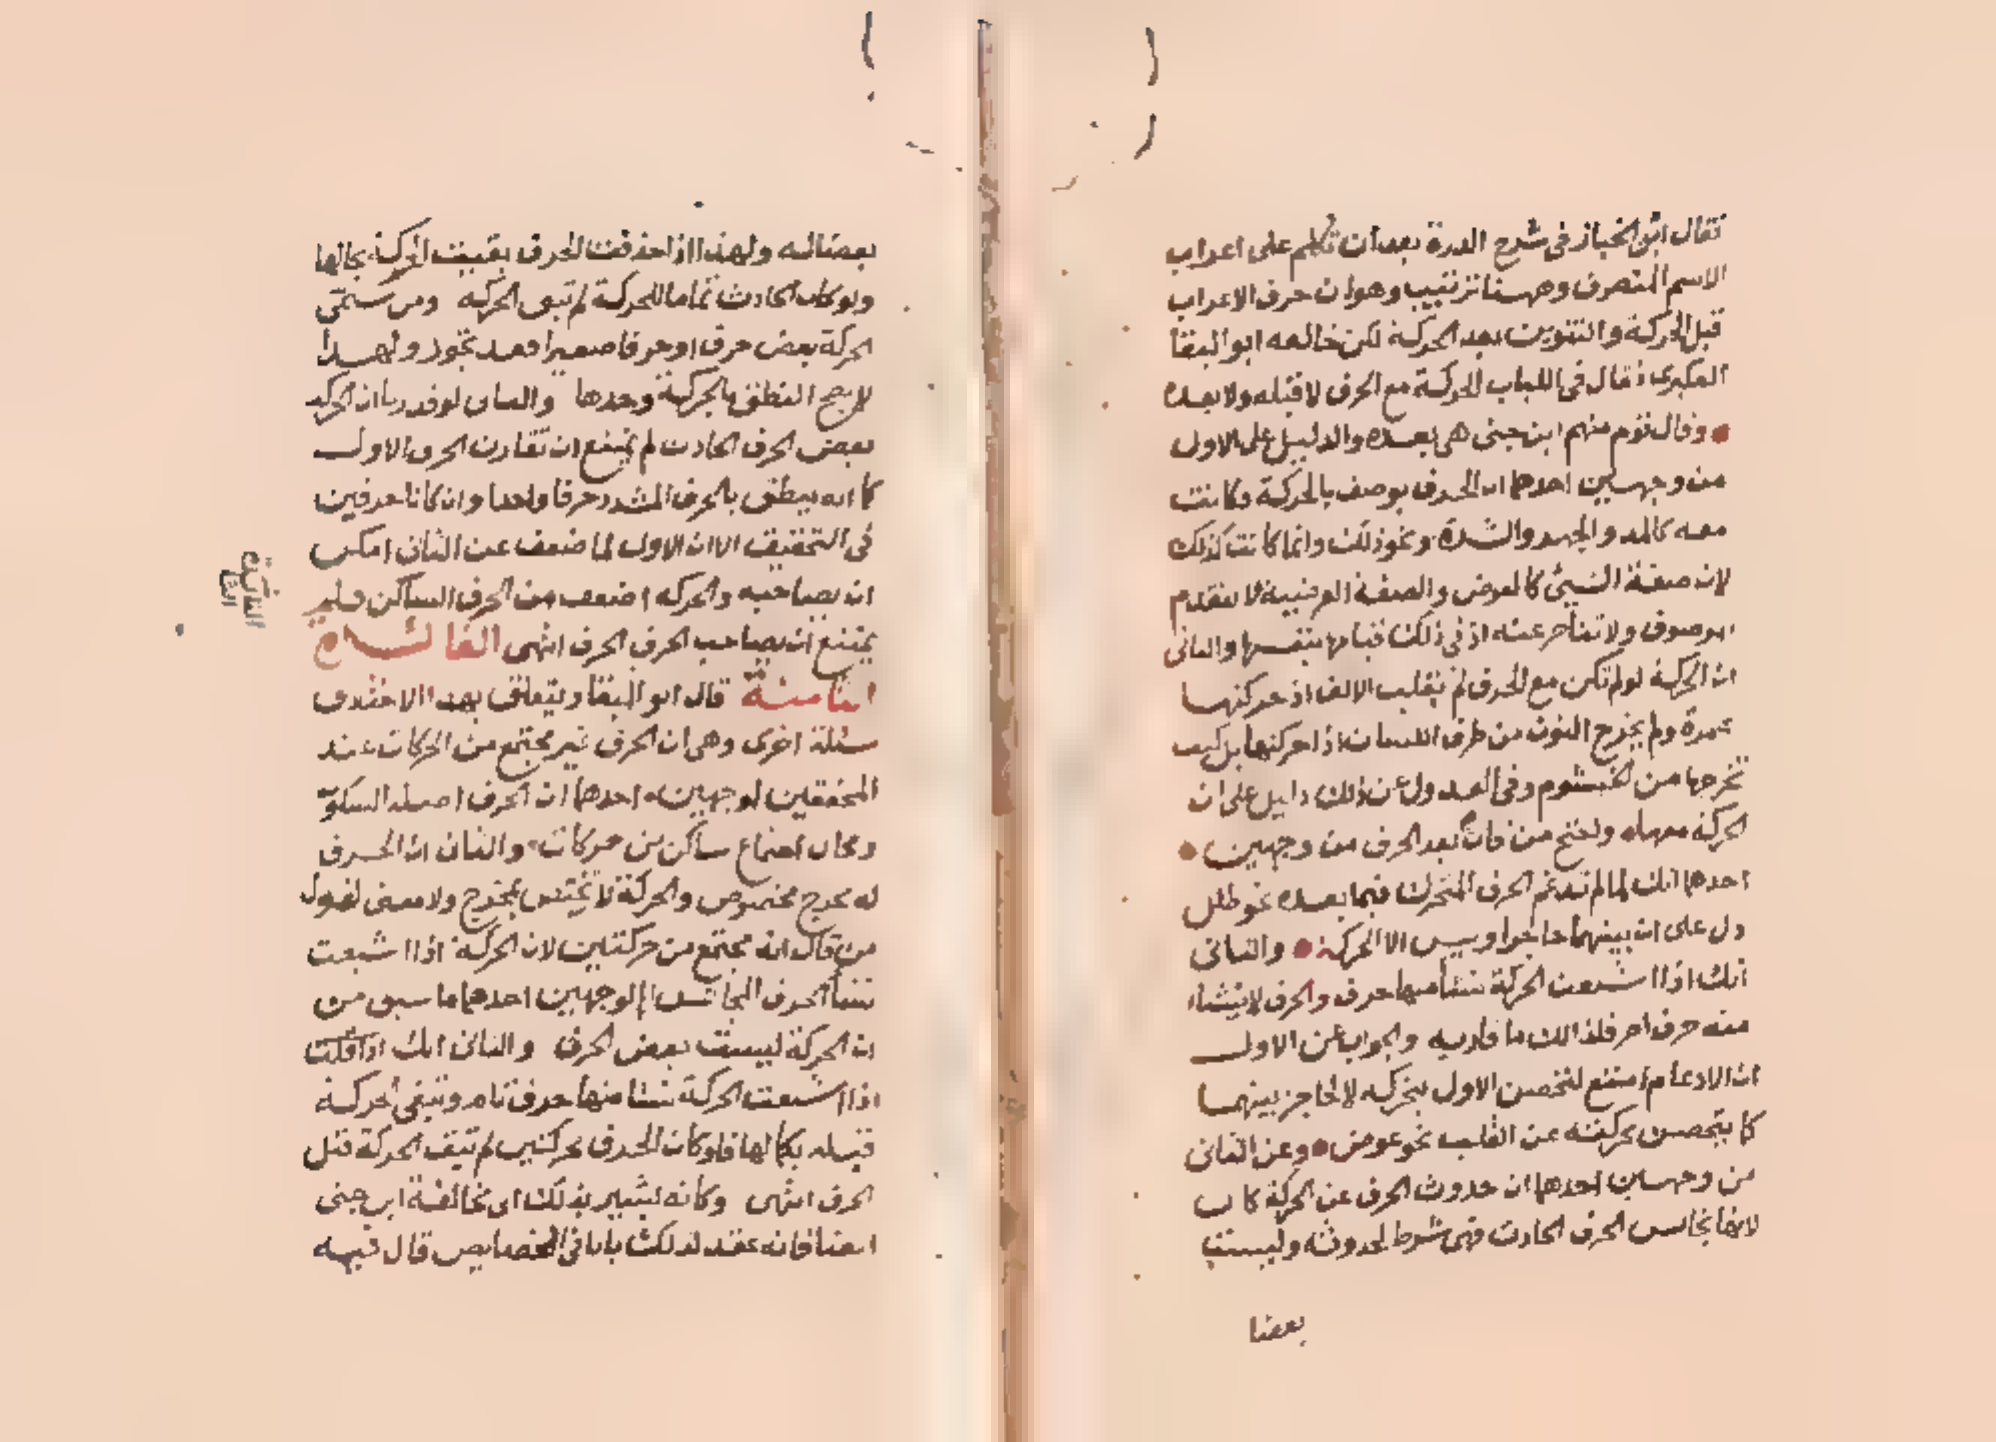 فقال ابن الخباز في شرح الدرة بعد ان تكلم على اعراب
الاسم المتصرف وههنا ترتيب وهوان حرف الاعراب
قبل الحركة والتنوين بعد الحركة لكن خالفه ابو البقا
العكبري فقال في اللباب الحركة مع الحرف لا قبله ولا بعده
وقال قوم منهم ابن جنى هي بعده والدليل على الاول
من وجهين احدهما ان الحرف يوصف بالحركة فكانت
معه كالمد والجهر والشدة ونحو ذلك وانما كانت كذلك
لان صفة الشيئ كالعرض والصفة العرضية لا تتقدم
الموصوف ولا تتأخر عنه اذ في ذلك قيامها بنفسها والثانى
ان الحركة لو لم تكن مع الحرف لم تقلب الالف اذ حركتها
همزة ولم يخرج النون من طرف اللسان اذا حركتها بل كيف
تخرجها من الخيشوم وفي العدول عن ذلك دليل على ان
الحركة معها واحتج من قال بعد الحرف من وجهين
احدهما انك لما لم تدغم الحرف المتحرك فيما بعده نحو طلل
دل على ان بينهما حاجزا وليس الا الحركة والثانى
انك اذا اشبعت الحركة نشأ منها حرف والحرف لا ينشأ
منه حرف اخر فلذالك ما قاربه والجواب عن الاول
ان الادغام امتنع لتحصن الاول بتحركه لا لحاجز بينهما
كما يتحصن بحركته عن القلب نحو عوض وعن الثانى
من وجهين احدهما ان حدوث الحرف عن الحركة كان
لانها تجانس الحرف الحادث فهي شرط لحدوثه وليست
بعضا
بعضاله ولهذا اذا حذفت الحرف بقيت الحركة بحالها
ولو كان الحادث تماما للحركة لم تبق الحركة ومن سمى
الحركة بعض حرف او حرفا صغيرا فقد تجوز ولهذا
لا يصح النطق بالحركة وحدها والثانى لو قدرنا ان الحركة
بعض الحرف الحادث لم يمتنع ان تقارن الحرف الاول
كما انه ينطق بالحرف المشدد حرفا واحدا وان كانا حرفين
في التحقيق الا ان الاول لما ضعف عن الثانى امكن
ان يصاحبه والحركه اضعف من الحرف الساكن فلم
يمتنع ان يصاحب الحرف الحرف انتهى الفائدة
الثامنة قال ابو البقا ويتعلق بهذا الاختلاف
مسئلة اخرى وهي ان الحرف غير مجتمع من الحركات عند
المحققين لوجهين احدهما ان الحرف اصله السكون
ومحال اجتماع ساكن من حركات والثانى ان الحرف
له مخرج مخصوص والحركة لا تختص بمخرج ولا معنى لقول
من قال انه مجتمع من حركتين لان الحركة اذا اشبعت
نشأ الحرف المجانس لها لوجهين احدهما ما سبق من
ان الحركة ليست بعض الحرف والثانى انك اذا قلت
اذا اشبعت الحركة نشأ منها حرف تام وتبقى الحركة
قبله بكمالها فلو كان الحرف حركتين لم تبق الحركة قبل
الحرف انتهى وكانه يشير بذلك الى مخالفة ابن جنى
ايضا فانه عقد لذلك بابا في الخصايص قال فيه
الفائدة
الثامنة